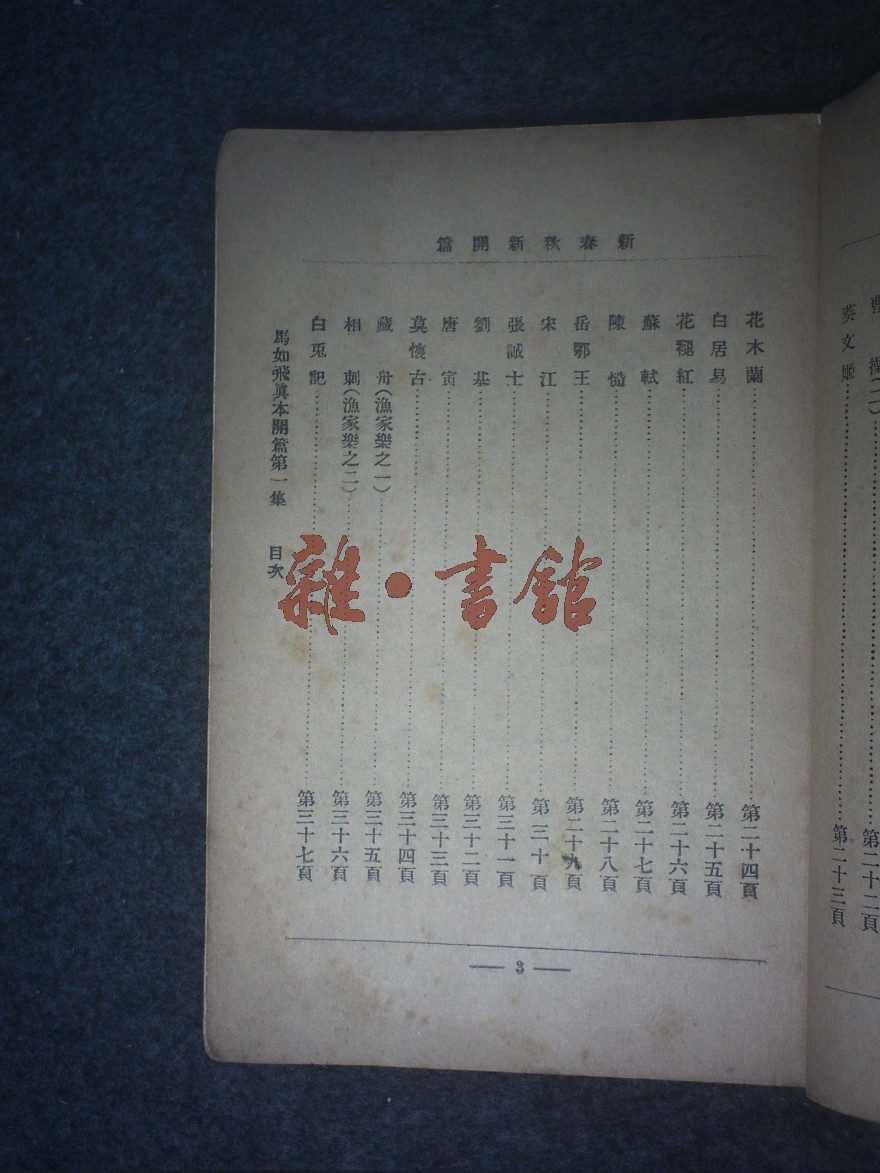 曹操(二)……第二十二頁
蔡文姬……第二十三頁
新春秋新開篇
花木蘭……第二十四頁
白居易……第二十五頁
花褪紅……第二十六頁
蘇軾……第二十七頁
陳慥……第二十八頁
岳鄂王……第二十九頁
宋江……第三十頁
張誠士……第三十一頁
劉基……第三十二頁
唐寅……第三十三頁
莫懷古……第三十四頁
藏舟(漁家樂之一)……第三十五頁
相刺(漁家樂之二)……第三十六頁
白兎記……第三十七頁
馬如飛眞本開篇第一集 目次
— 3 —
雜·書館